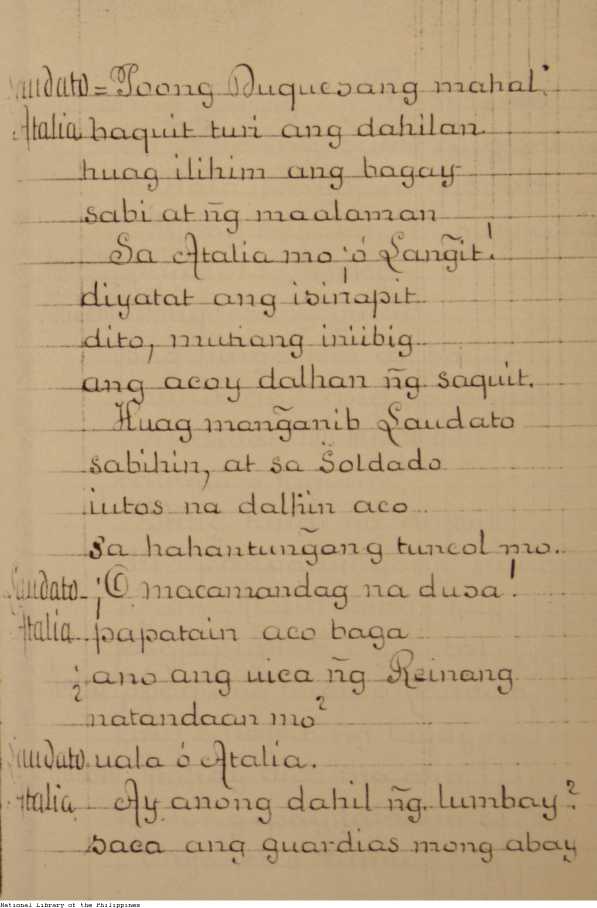 Laudato = Poong Duquesang mahal.
Atalia baquit turi ang dahilan
huag ilihim ang bagay
sabi at n͠g maalaman
Sa Atalia mo ¡ó Lang̃it!
diyatat ang isinapit
dito, mutiang iniibig
ang acoy dalhan n͠g saquit.
Huag mang̃anib Laudato
sabihin, at sa Soldado
iutos na dalhin aco
sa hahantung̃ang tuncol mo.
Laudato - ¡O macamandag na dusa!
Atalia papatain aco baga
¿ano ang uica n͠g Reinang
natandaan mo?
Laudato uala ó Atalia.
Atalia Ay anong dahil n͠g lumbay?
saca ang guardias mong abay
National Library of the Philippines